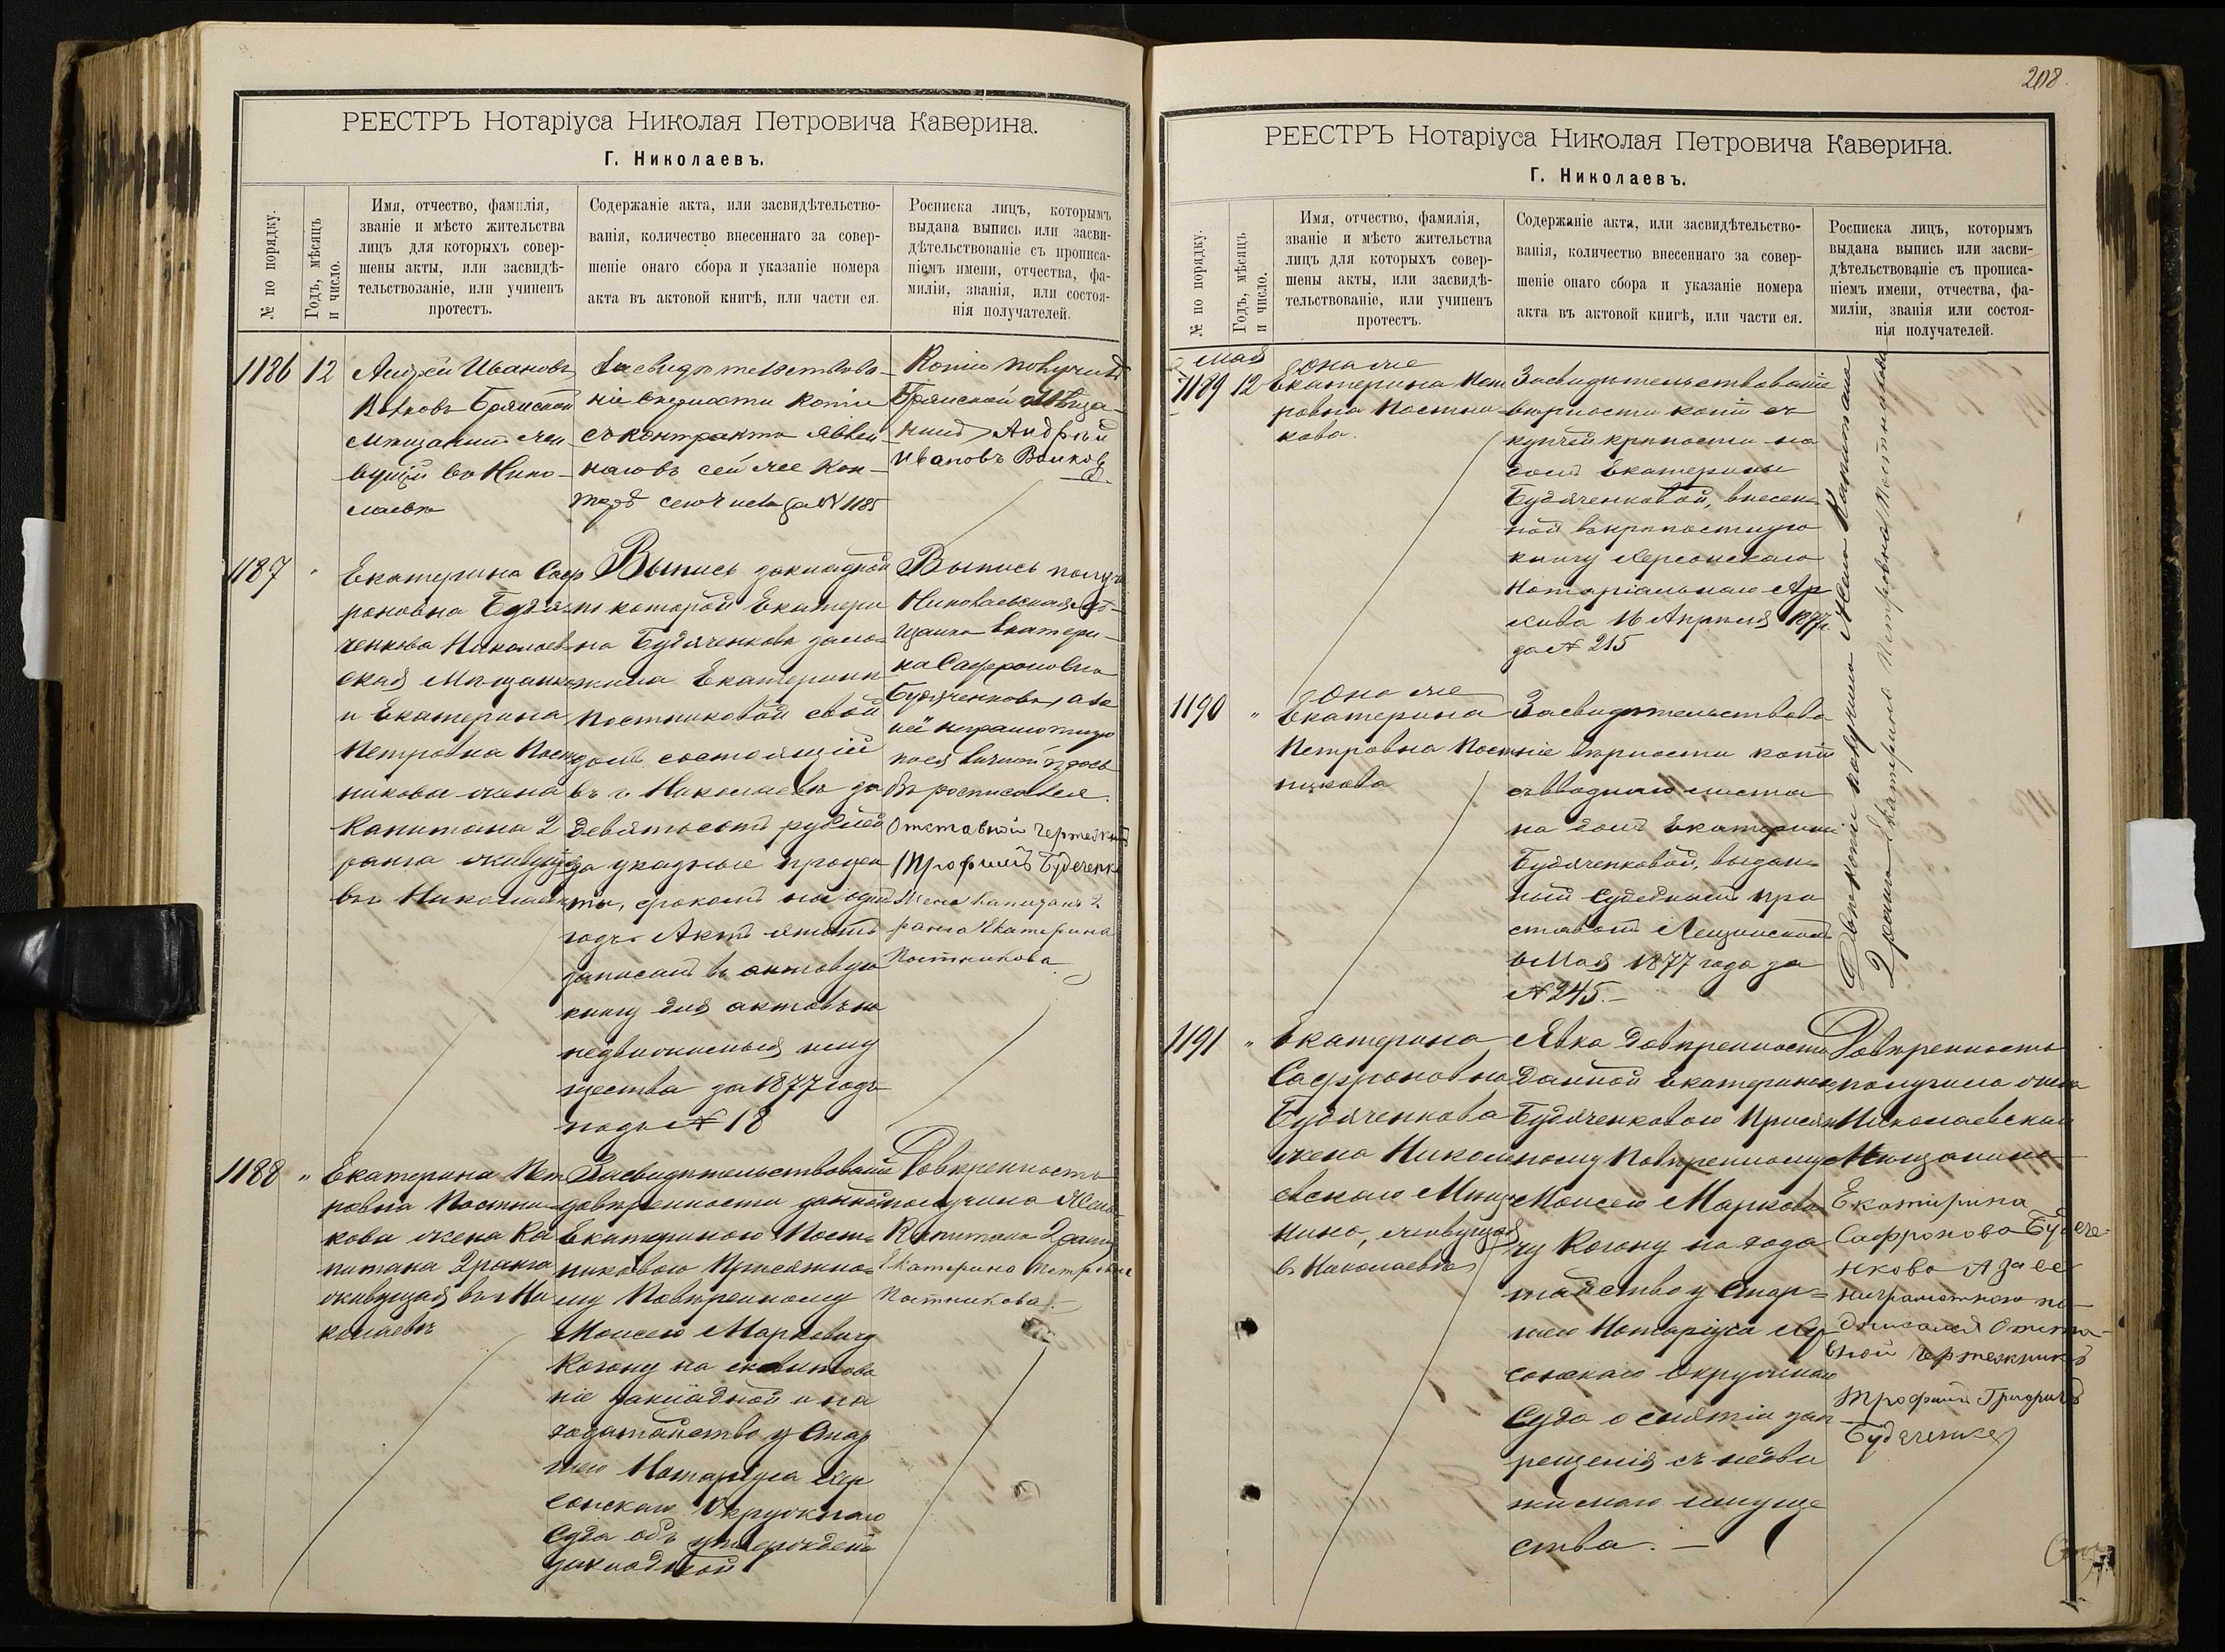 РЕЕСТРЪ Нотаріуса Николая Петровича Каверина.
Г. Николаевъ.
№ по порядку.
Годъ, мѣсяцъ
и число.
Имя, отчество, фамилія,
званіе и мѣсто жительства
лицъ для которыхъ совер-
шены акты, или засвидѣ-
тельствованіе, или учиненъ
протестъ.
Содержаніе акта, или засвидѣтельство-
ванія, количество внесеннаго за совер-
шеніе онаго сбора и указаніе номера
акта въ актовой книгѣ, или части ея.
Росписка лицъ, которымъ
выдана выпись или засви-
дѣтельствованіе съ прописа-
ніемъ имени, отчества, фа-
миліи, званія, или состоя-
нія получателей.
1186
12
Андрей Ивановъ
Волковъ Брянской
мѣщанинъ жи
вущій въ Нико-
лаевѣ
Засвидѣтельствова-
ніе вѣрности копіи
съ контракта явлен-
наго въ сей же Кон-
торѣ сего числа за № 1185
Копію получилъ
Брянской Мѣща-
нинъ Андрѣй
Ивановъ Волковъ
1187
"
Екатерина Саф
роновна Будя-
ченкова Николаев-
ская Мѣщанка
и Екатерина
Петровна Пост
никова жена
Капитана 2
ранга живущія
въ Николаевѣ
Выпись закладной
по которой Екатери
на Будяченкова зало-
жила Екатеринѣ
Постниковой свой
домъ состоящій
въ г. Николаевѣ за
девятьсотъ рублей
за указные процен
ты, срокомъ на одинъ
годъ. Актъ этотъ
записанъ въ актовую
книгу для актовъ на
недвижимыя иму
щества за 1877 годъ
подъ № 18
Выпись получ.
Николаевская Мѣ-
щанка Екатери-
на Сафроновна
Будяченкова, а за
неё неграмотную
по ея личной прось
бѣ росписался
Отставной Чертежникъ
Трофимъ Будяченко
Жена Капитана 2
ранга Екатерина
Постникова
1188
"
Екатерина Пет
ровна Постни
кова жена Ка
питана 2 ранга
живущая въ Ни
колаевѣ
Засвидѣтельствованіе
довѣренности данной
Екатериною Пост-
никовою Присяжно-
му Повѣренному
Моисею Марковичу
Когону на
ніе закладной и на
ходатайство у Стар
шего Нотаріуса Хер
сонскаго Окружнаго
Суда объ утвержденіи
закладной
Довѣренность
получила Жена
Капитана 2 ранга
Екатерина Петровна
Постникова.
208.
РЕЕСТРЪ Нотаріуса Николая Петровича Каверина.
Г. Николаевъ.
№ по порядку.
Годъ, мѣсяцъ
и число.
Имя, отчество, фамилія,
званіе и мѣсто жительства
лицъ для которыхъ совер-
шены акты, или засвидѣ-
тельствованіе, или учиненъ
протестъ.
Содержаніе акта, или засвидѣтельство-
ванія, количество внесеннаго за совер-
шеніе онаго сбора и указаніе номера
акта въ актовой книгѣ, или части ея.
Росписка лицъ, которымъ
выдана выпись или засви-
дѣтельствованіе съ прописа-
ніемъ имени, отчества, фа-
миліи, званія или состоя-
нія получателей.
Май
1189
12
Она же
Екатерина Пет
ровна Постни
кова.
Засвидѣтельствованіе
вѣрности копіи съ
купчей крѣпости на
домъ Екатерины
Будяченковой, внесен-
ной въ крѣпостную
книгу Херсонскаго
Нотаріальнаго Ар
хива 16 Апрѣля 1877 г.
за № 215
1190
"
Она же
Екатерина
Петровна Пост
никова
Засвидѣтельствова
ніе вѣрности копіи
съ вводнаго листа
на домъ Екатерины
Будяченковой, выдан-
ный Судебнымъ при
ставомъ Лещинскимъ
Мая 1877 года за
№ 245.-
Двѣ копіи получила Жена Капитана
2 ранга Екатерина Петровна Постникова
1191
"
Екатерина
Сафроновна
Будяченкова
жена Никола
евскаго Мѣща
нина, живущая
въ Николаевѣ
Явка довѣренности
данной Екатериною
Будяченковою Присяж
ному Повѣренному
Моисею Маркови
чу Когону на хода
тайство у Стар-
шего Нотаріуса Хер
сонскаго Окружнаго
Суда о снятіи зап
рещенія съ недви
жимаго имуще
ства. -
Довѣренность
получила жена
Николаевскаго
Мѣщанина
Екатирина
Сафронова Будяче-
нкова А за ее
ниграмотною по-
дписался Отста-
вной чертежникъ
Трофимъ Григорьевъ
Будяченко